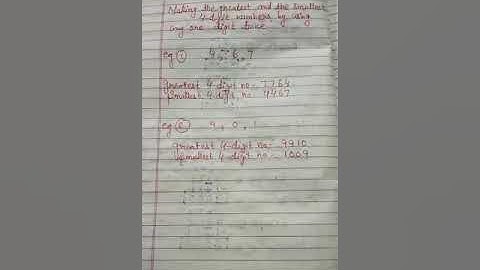 Making the greatest and the smallest
4-digit numbers by using
any one digit twice
eg ① 4, 6, 7
greatest 4 digit no = 7764
Smallest 4 digit no. 4467
eg ② 9, 0, 1
greatest 4-digit no. 9910
Smallest 4-digit no. 1009